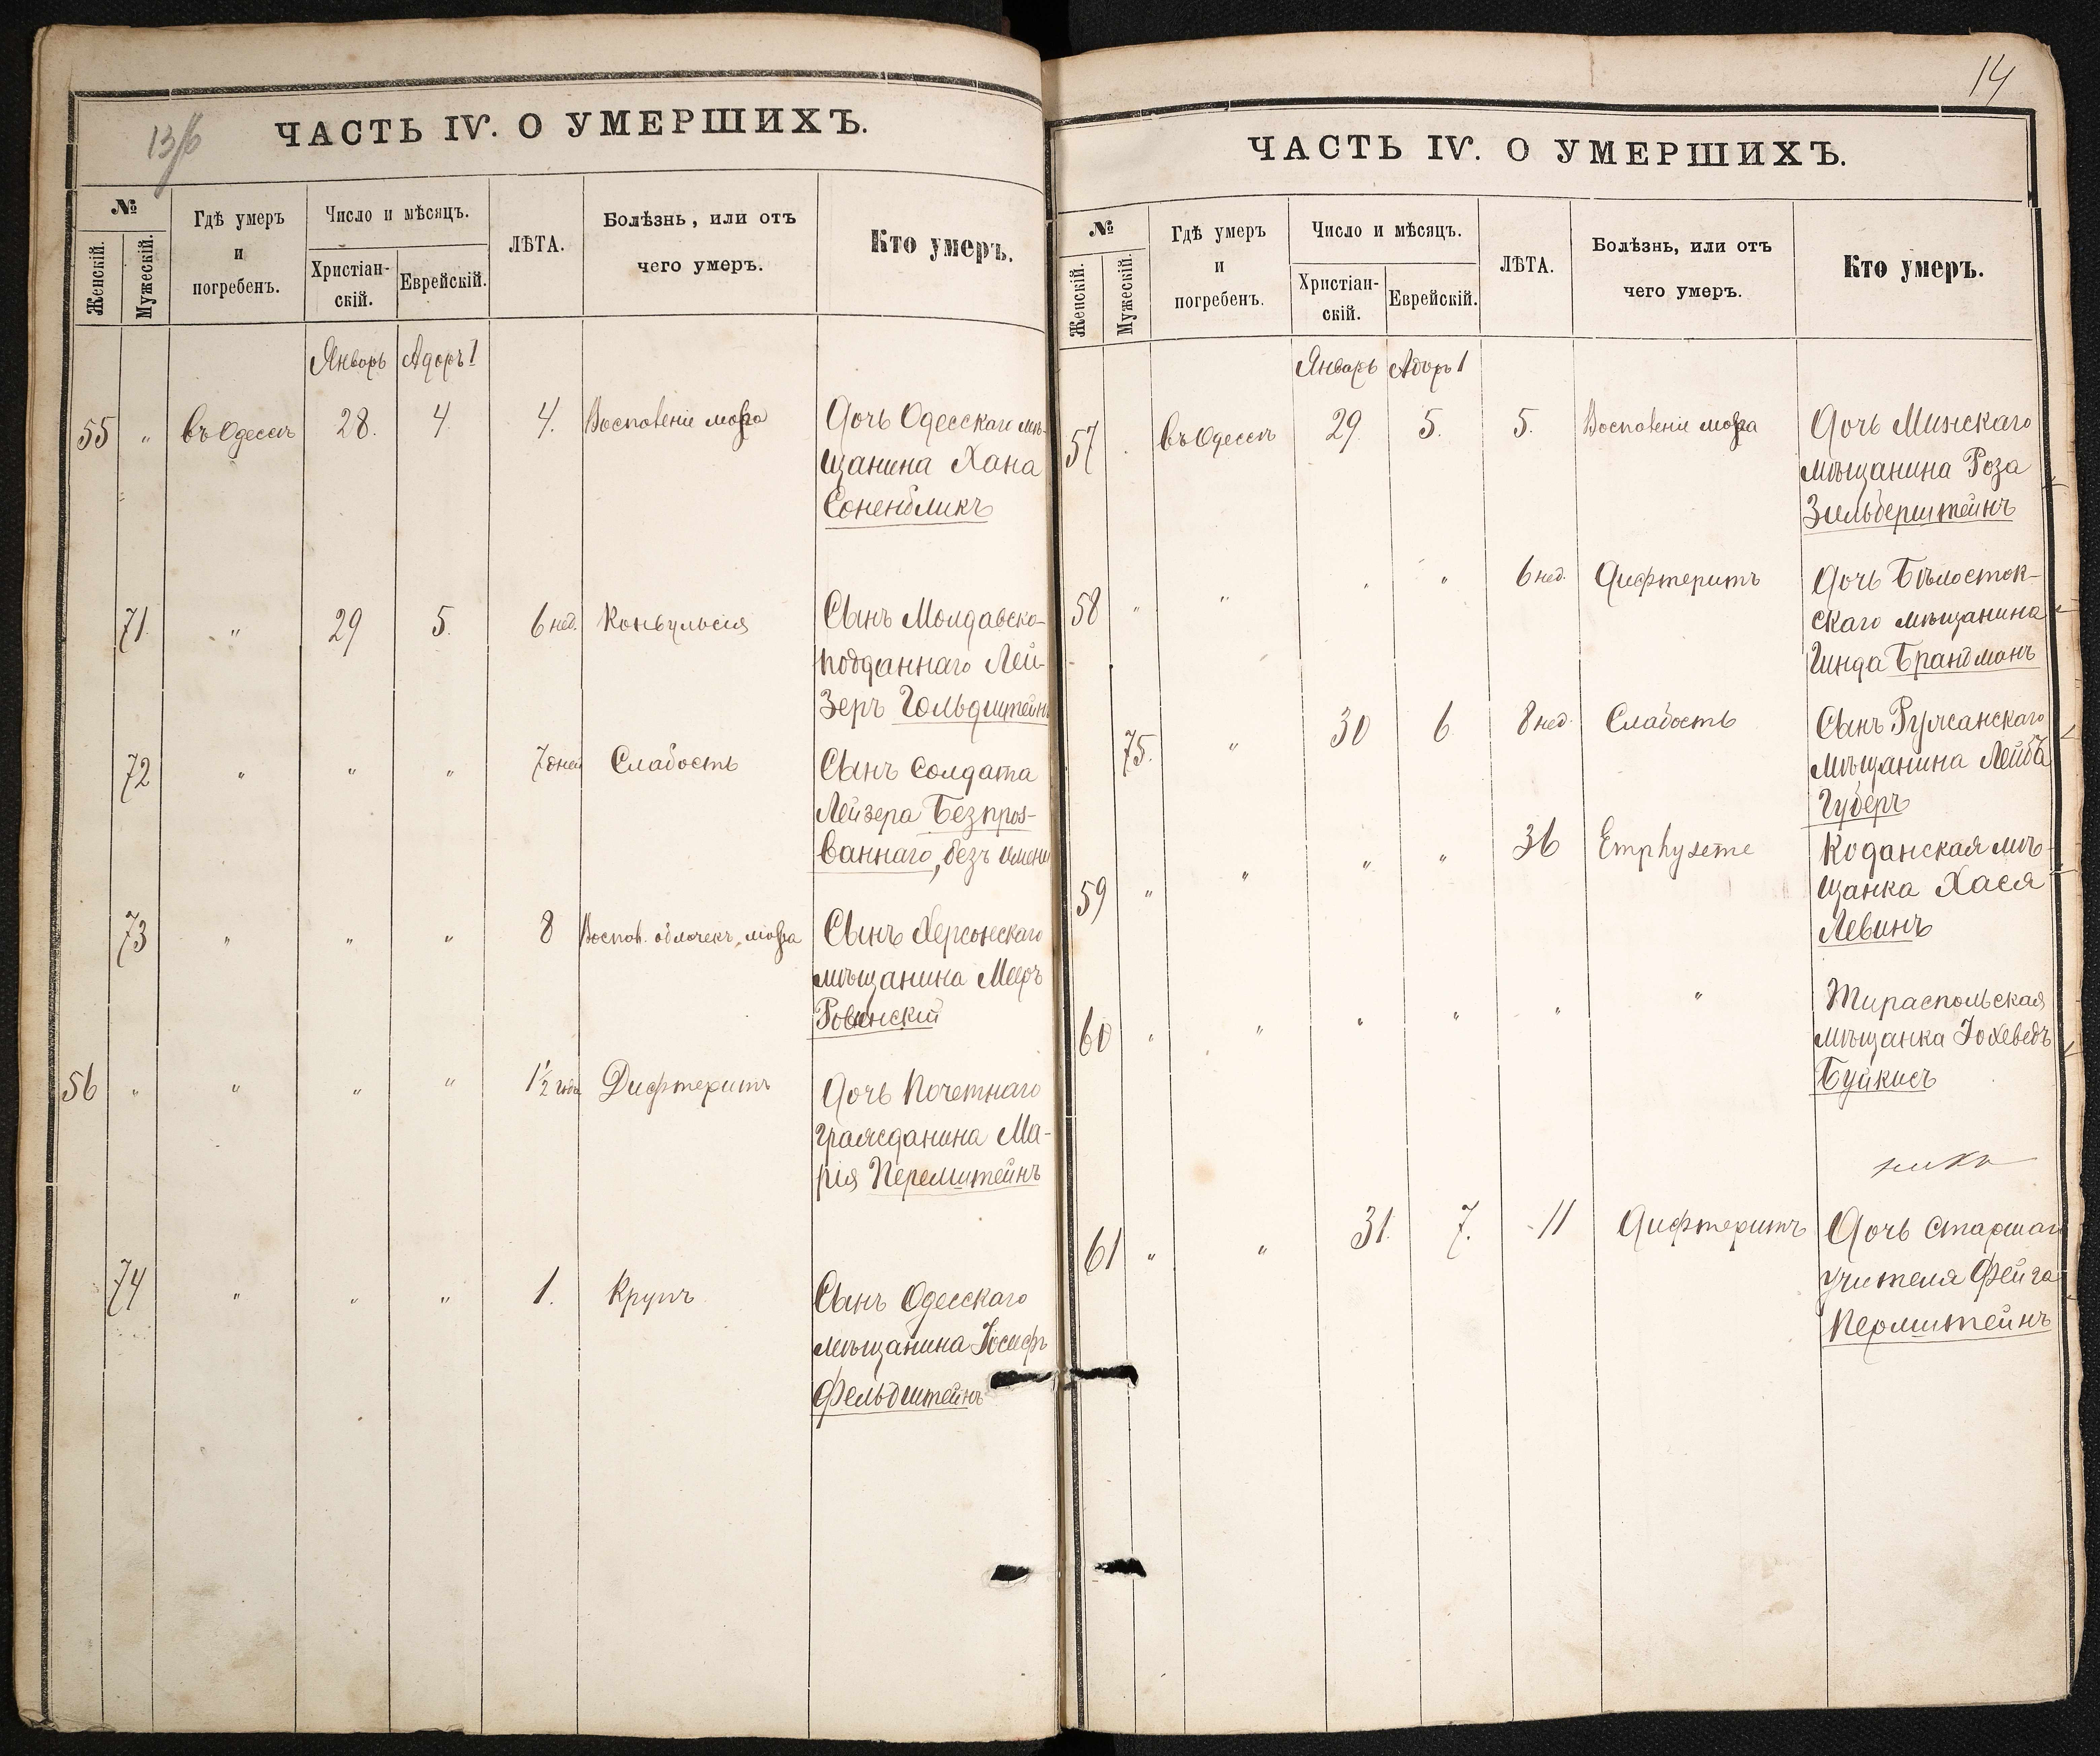 13/б
ЧАСТЬ IV. О УМЕРШИХЪ.
№
Женскій.
Мужескій.
Гдѣ умеръ
и
погребенъ.
Число и мѣсяцъ.
Христіан-
скій.
Еврейскій.
ЛѢТА.
Болѣзнь, или отъ
чего умеръ.
Кто умеръ.
Январь Адоръ 1
55 " въ Одессѣ 28. 4 4. Воспаленіе мозга Дочь Одесскаго мѣ-
щанина Хана
Соненбликъ
71 " 29 5. 6 нед. Конвульсія Сынъ Молдавско-
подданнаго Лей-
зеръ Гольдштейнъ
72 " " " 7 дней Слабость Сынъ солдата
Лейзера Безпроз-
ваннаго, безъ имени
73 " " " 8 Воспал. облочекъ мозга Сынъ Херсонскаго
мѣщанина Мееръ
Ровинскій
56 " " " " 1 1/2 года Дифтеритъ Дочь Почетнаго
гражданина Ма-
рія Перемштейнъ
74 " " " 1. Крупъ Сынъ Одесскаго
мѣщанина Іосифъ
Фельдштейнъ
14
ЧАСТЬ IV. О УМЕРШИХЪ.
№
Женскій.
Мужескій.
Гдѣ умеръ
и
погребенъ.
Число и мѣсяцъ.
Христіан-
скій.
Еврейскій.
ЛѢТА.
Болѣзнь, или отъ
чего умеръ.
Кто умеръ.
Январь Адоръ 1
57 въ Одессѣ 29. 5. 5. Воспаленіе мозга Дочь Минскаго
мѣщанина Роза
Зильберштейнъ
58 " " " " 6 нед. Дифтеритъ Дочь Бѣлосток-
скаго мѣщанина
Гинда Брандманъ
75. " 30 6 8 нед. Слабость Сынъ Ружанскаго
мѣщанина Лейба
Губеръ
59 " " " " 36 Emphyseme Коданская мѣ-
щанка Хася
Левинъ
60 " " " " " " Тираспольская
мѣщанка Іохеведъ
Буйкисъ
61 " " 31. 7. 11 Дифтеритъ Дочь старшаго
учителя Фейга
Пермштейнъ